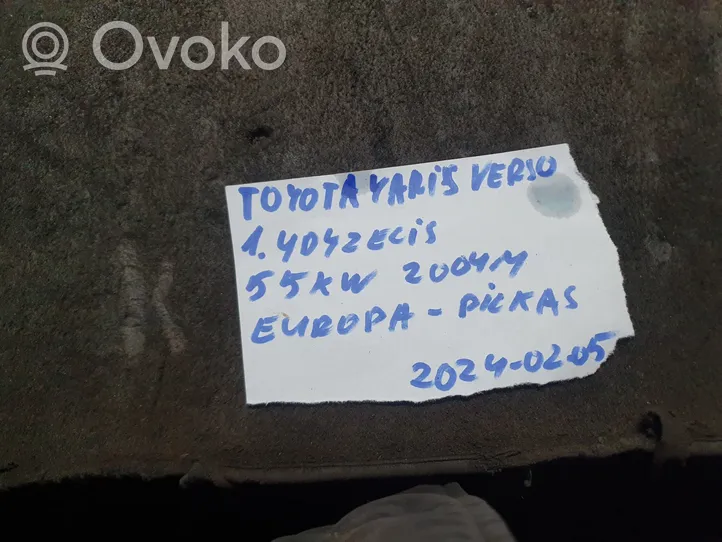 OVOKO
TOYOTA YARIS VERSO
1.4D4ZELIS
55KW 2004M
EUROPA - PILKAS
2024-02-05